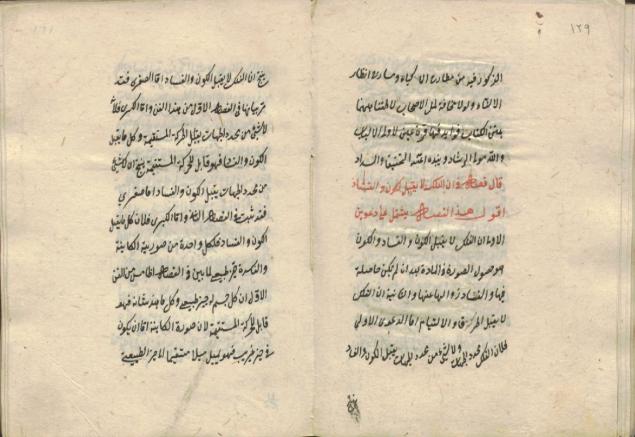 ١٢٩
المذكور فيه من مطارح الاذكياء ومسارح انظار
ولولا مخافة ملل الاصحاب
والله الرشاد وبيده والسداد
قال فصل في ان الفلك لا يقبل الكون والفساد
اقول هذا الفصل يشتمل على دعويين
الاولى ان الفلك لا يقبل الكون والفساد والكون
هو حصول الصورة في المادة بعد ان لم تكن حاصلة
فيها والفساد زوالها عنها والثانية ان الفلك
لا يقبل الخرق والالتيام اما الدعوى الاولى
فلان الفلك محدد للجهات ولا شئ من محدد الجهات يقبل الكون والفساد
ينتج ان الفلك لا يقبل الكون والفساد اما الصغرى فقد
مر بيانها في الفصل الاول من هذا الفن واما الكبرى فلانه
لا شئ من محدد الجهات يقبل الحركة المستقيمة وكل ما يقبل
الكون والفساد فهو قابل للحركة المستقيمة ينتج ان لا شئ
من محدد الجهات يقبل الكون والفساد اما صغرى
فقد ثبت في الفصل واما الكبرى فلان كل ما يقبل
الكون والفساد فلكل واحدة من صورتيه الكائنة
والفاسدة حيز طبيعي لما بين في الفصل من الفن
الاول ان كل جسم له حيز طبيعي وكل ما هذا شانه فهو
قابل للحركة المستقيمة لان صورة الكائنة اما ان يكون
في حيز غريب فهو يميل ميلا مستقيما الى حيز الطبيعي